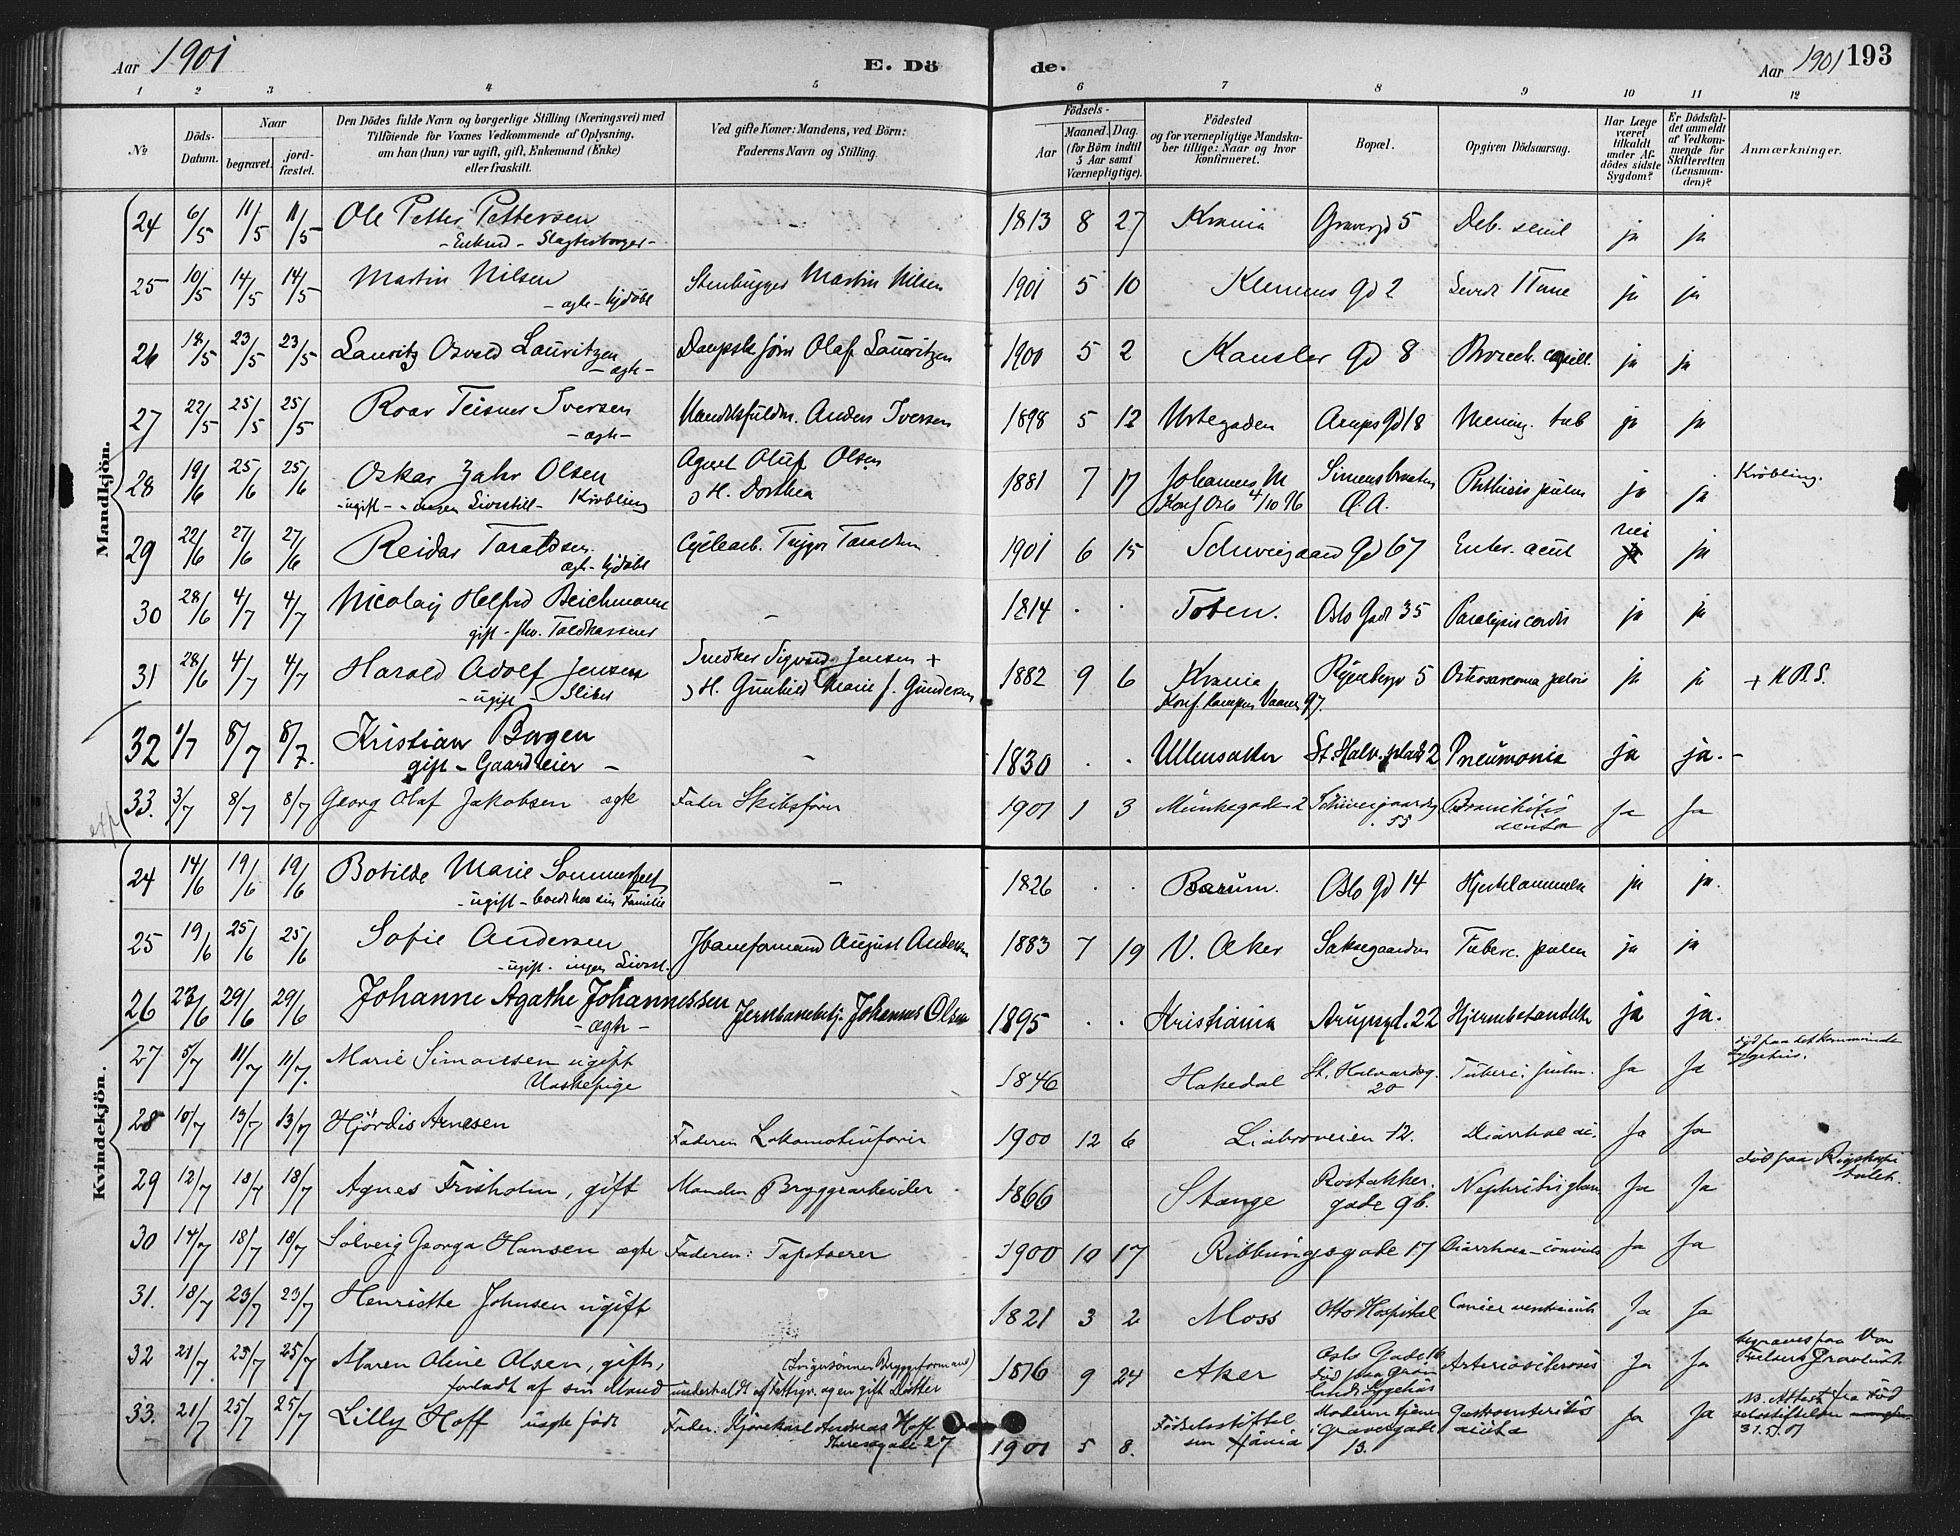 Aar 1901
E. Dö
de.
Aar 1901 193
1 2 3 4 5 6 7 8 9 10 11 12
No
Döds-
Datum.
Naar
begravet.
jord-
fæstet.
Den Dödes fulde Navn og borgerlige Stilling (Næringsvei) med
Tilföiende for Voxnes Vedkommende af Oplysning,
om han (hun) var ugift, gift, Enkemand (Enke)
eller fraskilt.
Ved gifte Koner: Mandens, ved Börn:
Faderens Navn og Stilling.
Födsels-
Aar
Maaned. Dag.
(for Börn indtil
5 Aar samt
Værnepligtige).
Födested
og for værnepligtige Mandska-
ber tillige: Naar og hvor
konfirmeret.
Bopæl.
Opgiven Dödsaarsag.
Har Læge
været
tilkaldt
under Af-
dödes sidste
Sygdom?
Er Dödsfal-
det anmeldt
af Vedkom-
mende for
Skifteretten
(Lensman-
den)?
Anmærkninger.
Mandkjön.
24 6/5 11/5 11/5 Ole Petter Pettersen - 1813 8 27 Krania Gravergd 5 Deb. senil ja ja
- Enkmd - Slagterborger -
25 10/5 14/5 14/5 Martin Nilsen Stenhugger Martin Nilsen 1901 5 10 Klemens gd 2 ja ja
- ægte - hjdöbt
26 18/5 23/5 23/5 Lauritz Osvald Lauritzen Dampsk förer Olaf Lauritzen 1900 5 2 Kansler gd 8 Bronch. capill. ja ja
- ægte -
27 22/5 25/5 25/5 Roar Teisner Iversen Handelsfuldm. Anders Iversen 1898 5 12 Urtegaden Arups gd 18 Mening. tub ja ja
- ægte -
28 19/6 25/6 25/6 Oskar Zahr Olsen Agent Oluf Olsen 1881 7 17 Johannes M Simensbraaten Phthisis pulm ja ja Krøbling.
- ugift - ingen Livsstill - Krøbling o H. Dorthea Konf Oslo 4/10 96 Ø. A.
29 22/6 27/6 27/6 Reidar Taraldsen Cyclearb. Trygve Taraldsen 1901 6 15 Schweigaard gd 67 Enter. acut nei ja
ægte - hjdöbt
30 28/6 4/7 4/7 Nicolay Helfred Beichmann - 1814 . . Toten. Oslo Gade 35 Paralysis cordis ja ja
gift - fhv. Toldkasserer
31 28/6 4/7 4/7 Harald Adolf Jensen Snedker Sigvard Jensen + 1882 9 6 Krania Ryenbergv 5 Osteosarcoma pelvis ja ja + K.R.S.
- ugift - Sliber o H. Gunhild Marie f. Gundersen Konf. Kampen Vaaren 97.
32 1/7 8/7 8/7. Kristian Borgen - 1830 . . Ullensaker St. Halv. plads 2 Pneumonia ja ja. -
gift - Gaardeier -
33. 3/7 8/7 8/7 Georg Olaf Jakobsen ægte Fader Skibsförer 1901 1 3 Munkegaden 2 Schweigaardsg Bronchitis Ja Ja
55
Kvindekjön.
24 14/6 19/6 19/6 Botilde Marie Sommerfelt - 1826 . . Bærum. Oslo gd 14 Hjertelammelse ja ja.
- ugift - boede hos sin Familie
25 19/6 25/6 25/6 Sofie Andersen Jbaneformand August Andersen 1883 7 19 V. Aker Saksegaarden Tuberc. pulm ja ja
- ugift - ingen Livsst.
26 23/6 29/6 29/6 Johanne Agathe Johannessen Jernbanebetj. Johannes Olsen 1895 . . Kristiania Arupsgd. 22 ja ja.
- ægte -
27 5/7 11/7 11/7. Marie Simonsen ugift 1846 Hakedal St. Halvardsg. 20 Tuberc. pulm. Ja Ja död paa det kommunale Sygehus.
Vaskepige
28 10/7 13/7 13/7 Hjördis Arnesen Faderen Lokomotivförer 1900 12 6 Liabroveien 12. Diarrhoe ac. Ja Ja
29 12/7 18/7 18/7 Agnes Frisholm, gift Manden Bryggearbeider 1866 Stange Rostokker.gade 9b. Ja Ja död paa Rigshospitalet.
30 14/7 18/7 18/7 Solveig Georga Hansen ægte Faderen: Tapetserer 1900 10 17 Ribbungsgade 17 Ja Ja
31. 18/7 23/7 23/7 Henriette Johnsen ugift 1821 3 2 Moss Otto Hospital Cancer ventriculi Ja Ja
32 21/7. 25/7 25/7 Maren Oline Olsen, gift, 1876 9 24 Aker Arteriosclerosis Ja Ja
forladt af sin Mand underholdt af Fattigv. og en gift Datter
33. 21/7 25/7 25/7 Lilly Hoff uægte födt Fader: Kjörekarl Andreas Hoff 1901 5 8. Födselsstiftelsen Xania Moderen tjener i Gravergade 13. Gastroenteritis acuta Ja Ja NB. Attest fra Födselsstiftelsen
Theresgade 27 31.5.01